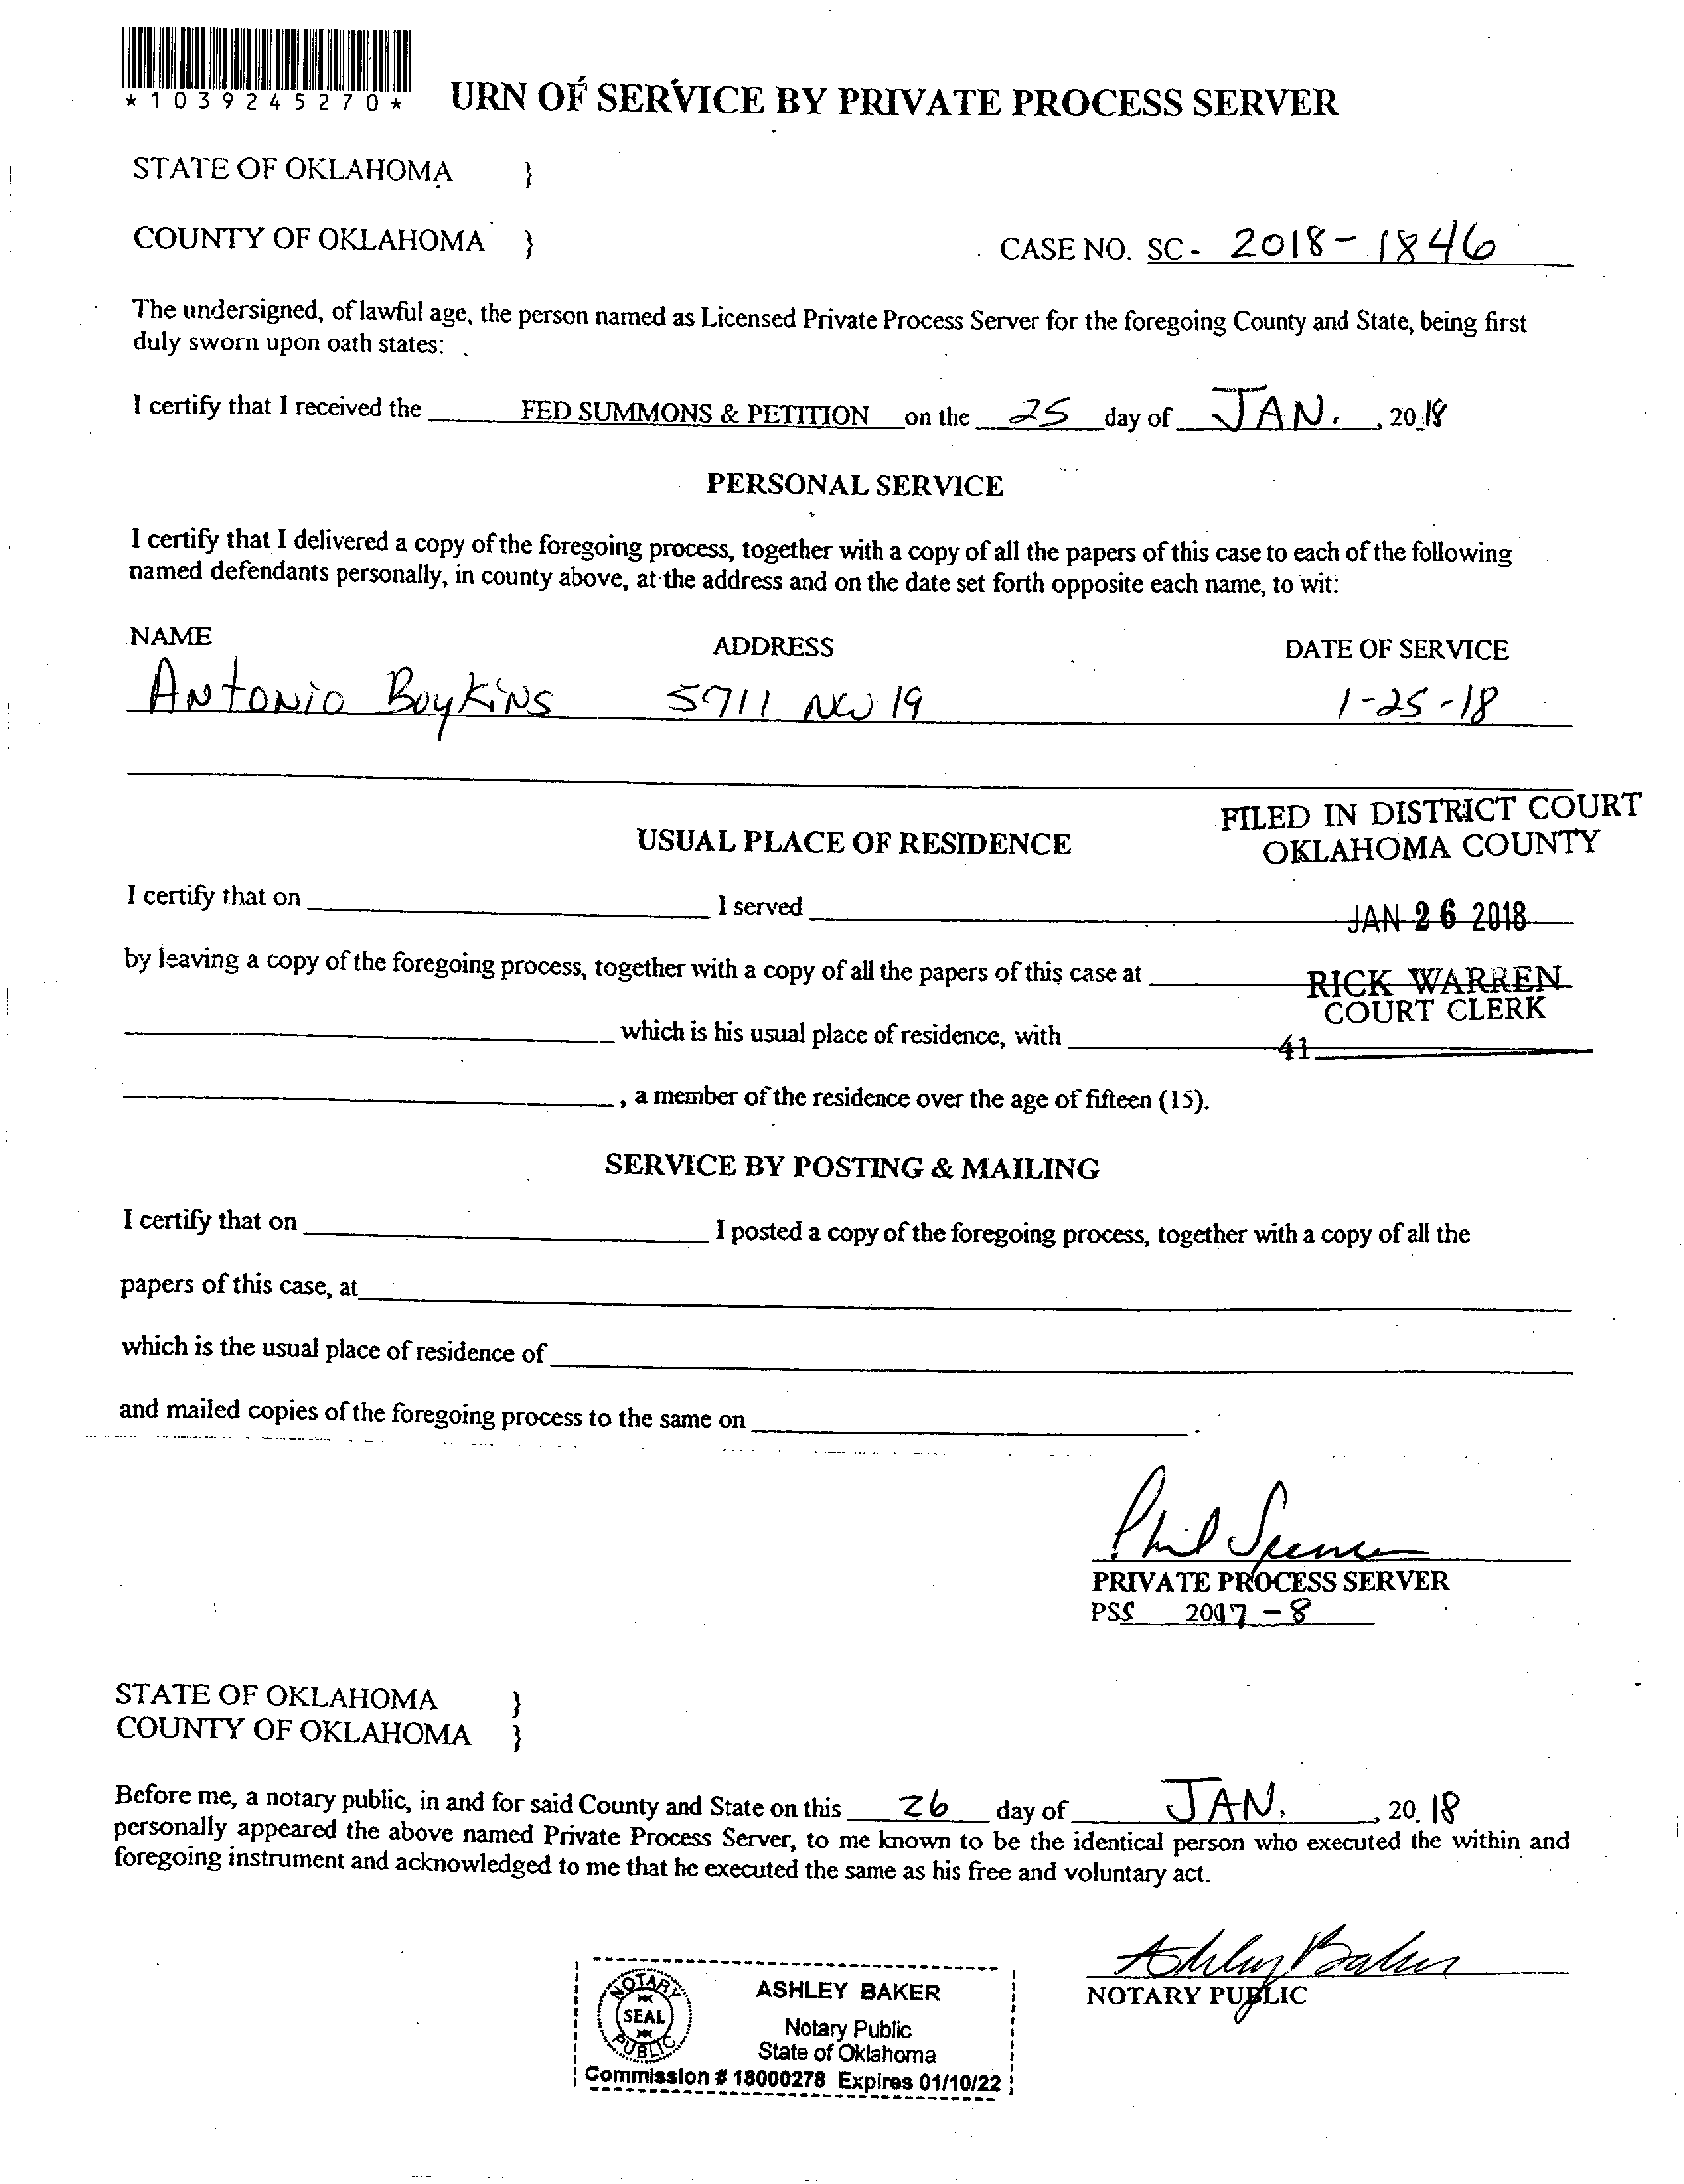 *1039245270*
URN OF SERVICE BY PRIVATE PROCESS SERVER
STATE OF OKLAHOMA }
COUNTY OF OKLAHOMA } CASE NO. SC - 2018-1846
The undersigned, of lawful age, the person named as Licensed Private Process Server for the foregoing County and State, being first
duly sworn upon oath states:
I certify that I received the FED SUMMONS & PETITION on the 25 day of JAN. , 2018
PERSONAL SERVICE
I certify that I delivered a copy of the foregoing process, together with a copy of all the papers of this case to each of the following
named defendants personally, in county above, at the address and on the date set forth opposite each name, to wit:
NAME ADDRESS DATE OF SERVICE
Antonio Boykins 5711 NW 19 1-25-18
FILED IN DISTRICT COURT
OKLAHOMA COUNTY
USUAL PLACE OF RESIDENCE
I certify that on I served
JAN 26 2018
by leaving a copy of the foregoing process, together with a copy of all the papers of this case at
RICK WARREN
COURT CLERK
which is his usual place of residence, with
41
, a member of the residence over the age of fifteen (15).
SERVICE BY POSTING & MAILING
I certify that on I posted a copy of the foregoing process, together with a copy of all the
papers of this case, at
which is the usual place of residence of
and mailed copies of the foregoing process to the same on .
Phil Spencer
PRIVATE PROCESS SERVER
PSS 2017-8
STATE OF OKLAHOMA }
COUNTY OF OKLAHOMA }
Before me, a notary public, in and for said County and State on this 26 day of JAN. , 20.18
personally appeared the above named Private Process Server, to me known to be the identical person who executed the within and
foregoing instrument and acknowledged to me that he executed the same as his free and voluntary act.
Ashley Baker
NOTARY PUBLIC
NOTARY
SEAL
PUBLIC
ASHLEY BAKER
Notary Public
State of Oklahoma
Commission # 18000278 Expires 01/10/22